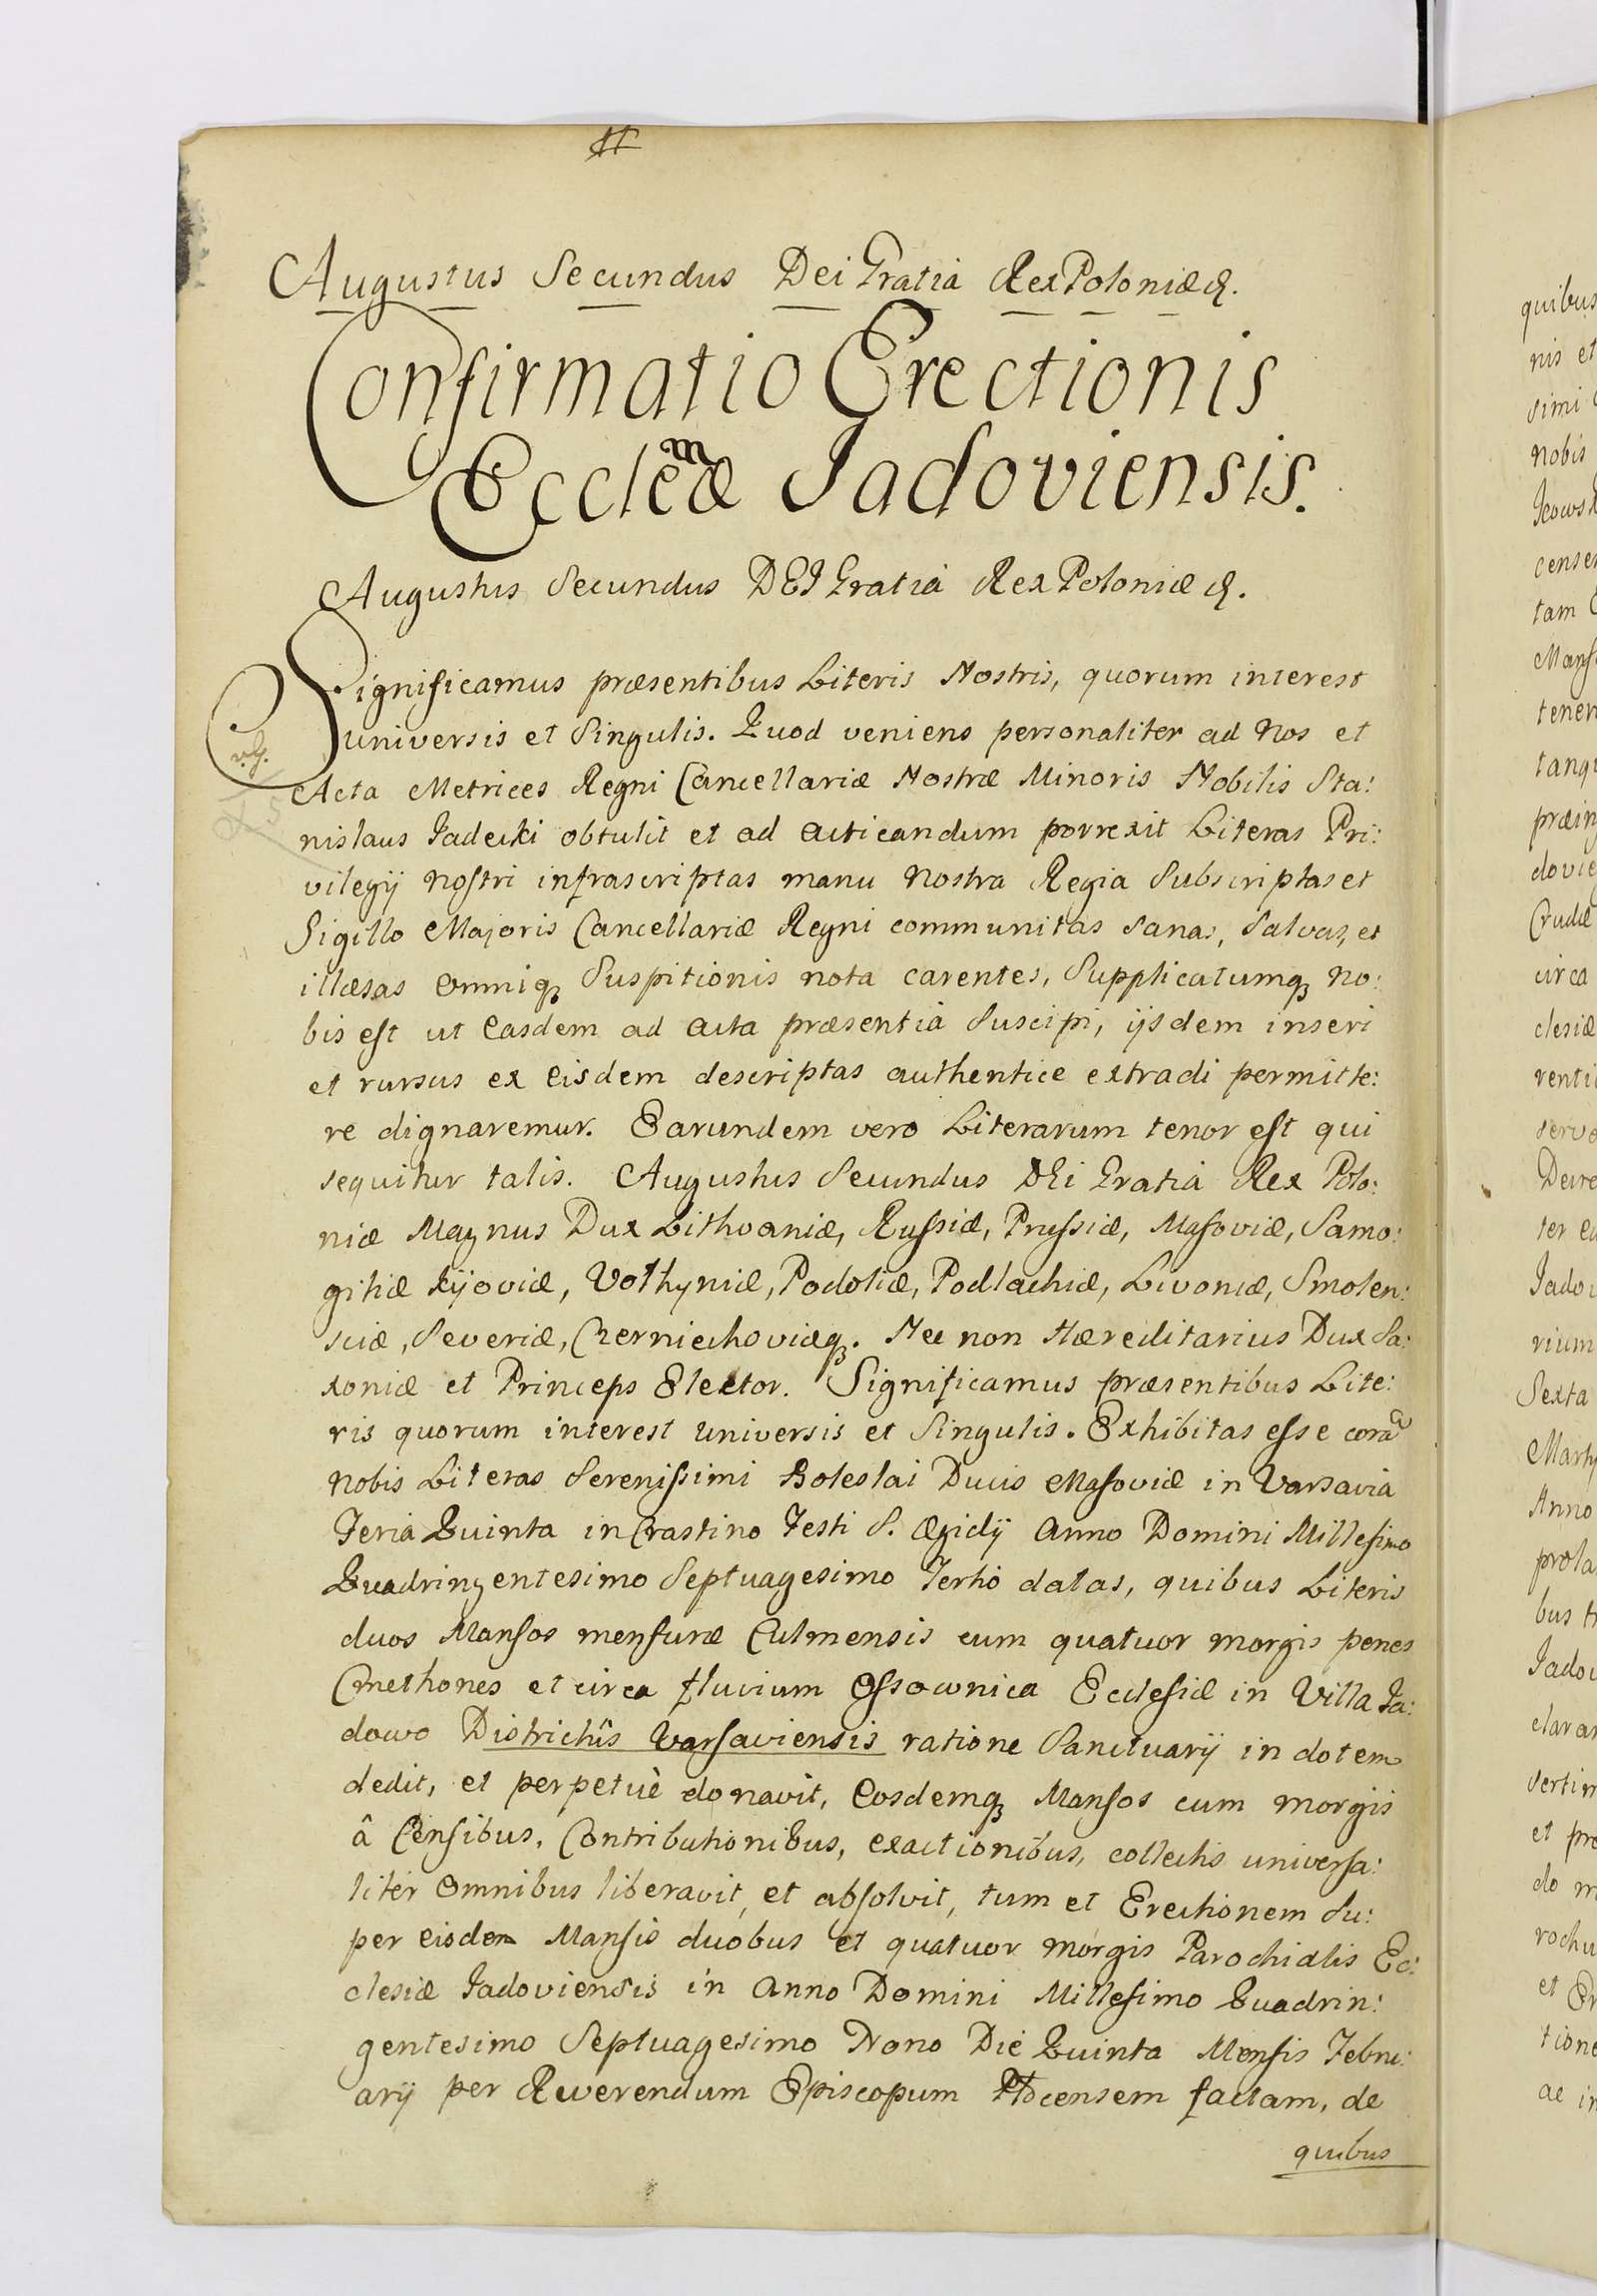 Augustus Secundus Dei Gratia Rex Poloniæ &.
Confirmatio Erectionis
Eccleæ m Jadoviensis.
Augustus Secundus DEI Gratia Rex Poloniæ &.
Significamus præsentibus Literis Nostris, quorum interest
universis et Singulis. Quod veniens personaliter ad Nos et
Acta Metrices Regni Cancellariæ Nostræ Minoris Nobilis Sta:
nislaus Jadecki obtulit et ad acticandum porrexit Literas Pri:
vilegij nostri infrascriptas manu Nostra Regia Subscriptas et
Sigillo Majoris Cancellariæ Regni communitas sanas, salvas, et
illæsas omniq3 Suspitionis nota carentes, Supplicatumq3 No:
bis est ut Easdem ad acta præsentia suscipi, ijsdem inseri
et rursus ex eisdem descriptas authentice extradi permitte:
re dignaremur. Earundem vero Literarum tenor est qui
sequitur talis. Augustus Secundus DEi Gratia Rex Polo:
niæ Magnus Dux Lithvaniæ, Russiæ, Prussiæ, Masoviæ, Samo:
gitiæ Kijoviæ, Volhyniæ, Podoliæ, Podlachiæ, Livoniæ, Smolen:
sciæ, Severiæ, Czerniechoviæq3. Nec non Hæreditarius Dux Sa:
xoniæ et Princeps Elector. Significamus præsentibus Lite:
ris quorum interest universis et Singulis. Exhibitas esse corã
nobis Literas Serenissimi Boleslai Ducis Masoviæ in Varsavia
Feria Quinta in Crastino Festi S. Ægidij Anno Domini Millesimo
Quadringentesimo Septuagesimo Tertio datas, quibus Literis
duos Mansos mensuræ Culmensis cum quatuor morgis penes
Cmethones et circa fluvium Ossownica Ecclesiæ in Villa Ja:
dowo Districtûs Varsaviensis ratione Sanctuarij in dotem
dedit, et perpetuè donavit, Eosdemq3 Mansos cum morgis
â Censibus, Contributionibus, exactionibus, collectis universa:
liter omnibus liberavit, et absolvit, tum et Erectionem su:
per eisdem Mansis duobus et quatuor morgis Parochialis Ec:
clesiæ Jadoviensis in Anno Domini Millesimo Quadrin:
gentesimo Septuagesimo Nono Die Quinta Mensis Febru:
arij per Reverendum Episcopum Plocensem factam, de
quibus
quibus
nis et
simi
nobis
tam
tenen
circa
clesiæ
Jadov
rium
Sexta
Anno
Jadov
et pro
et
tione